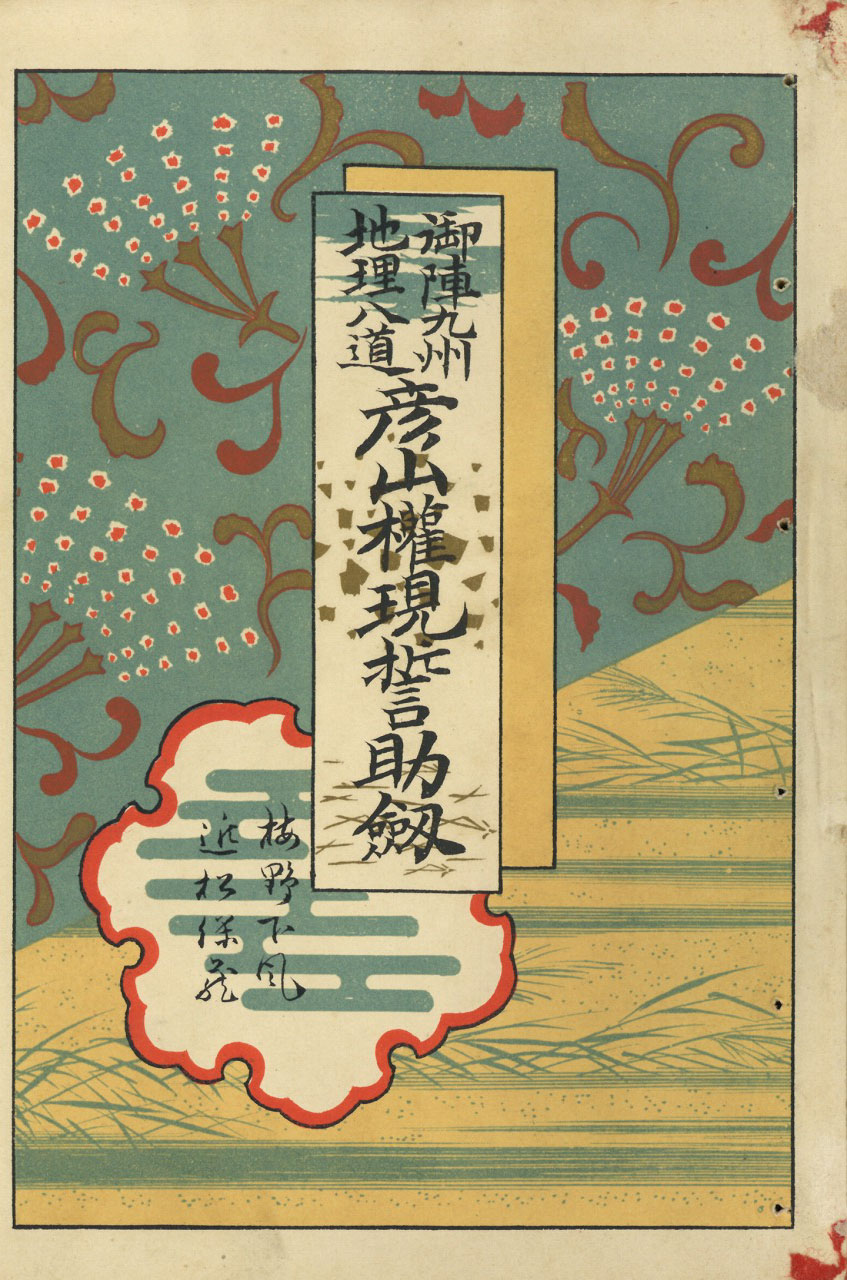 御陣九州
地理八道
彦山權現誓助劔
梅野下風
近松保蔵